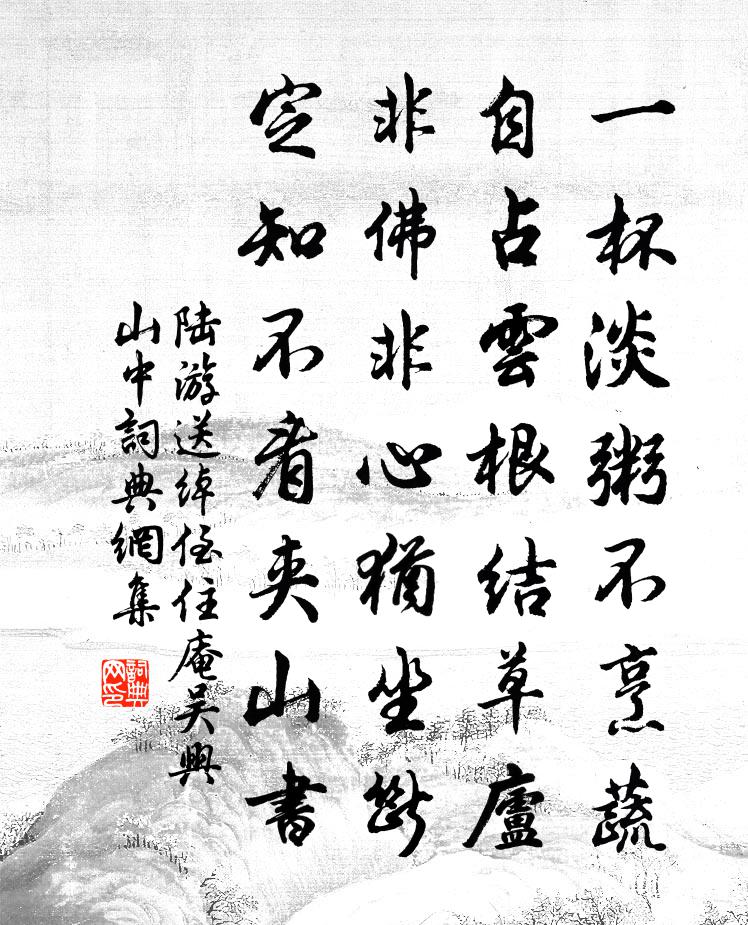 一杯淡粥不烹蔬
自占雲根結草廬
非佛非心猶坐斷
定知不看夾山書
陸游送綽侄住庵吳興
山中詞典網集
詞典网印